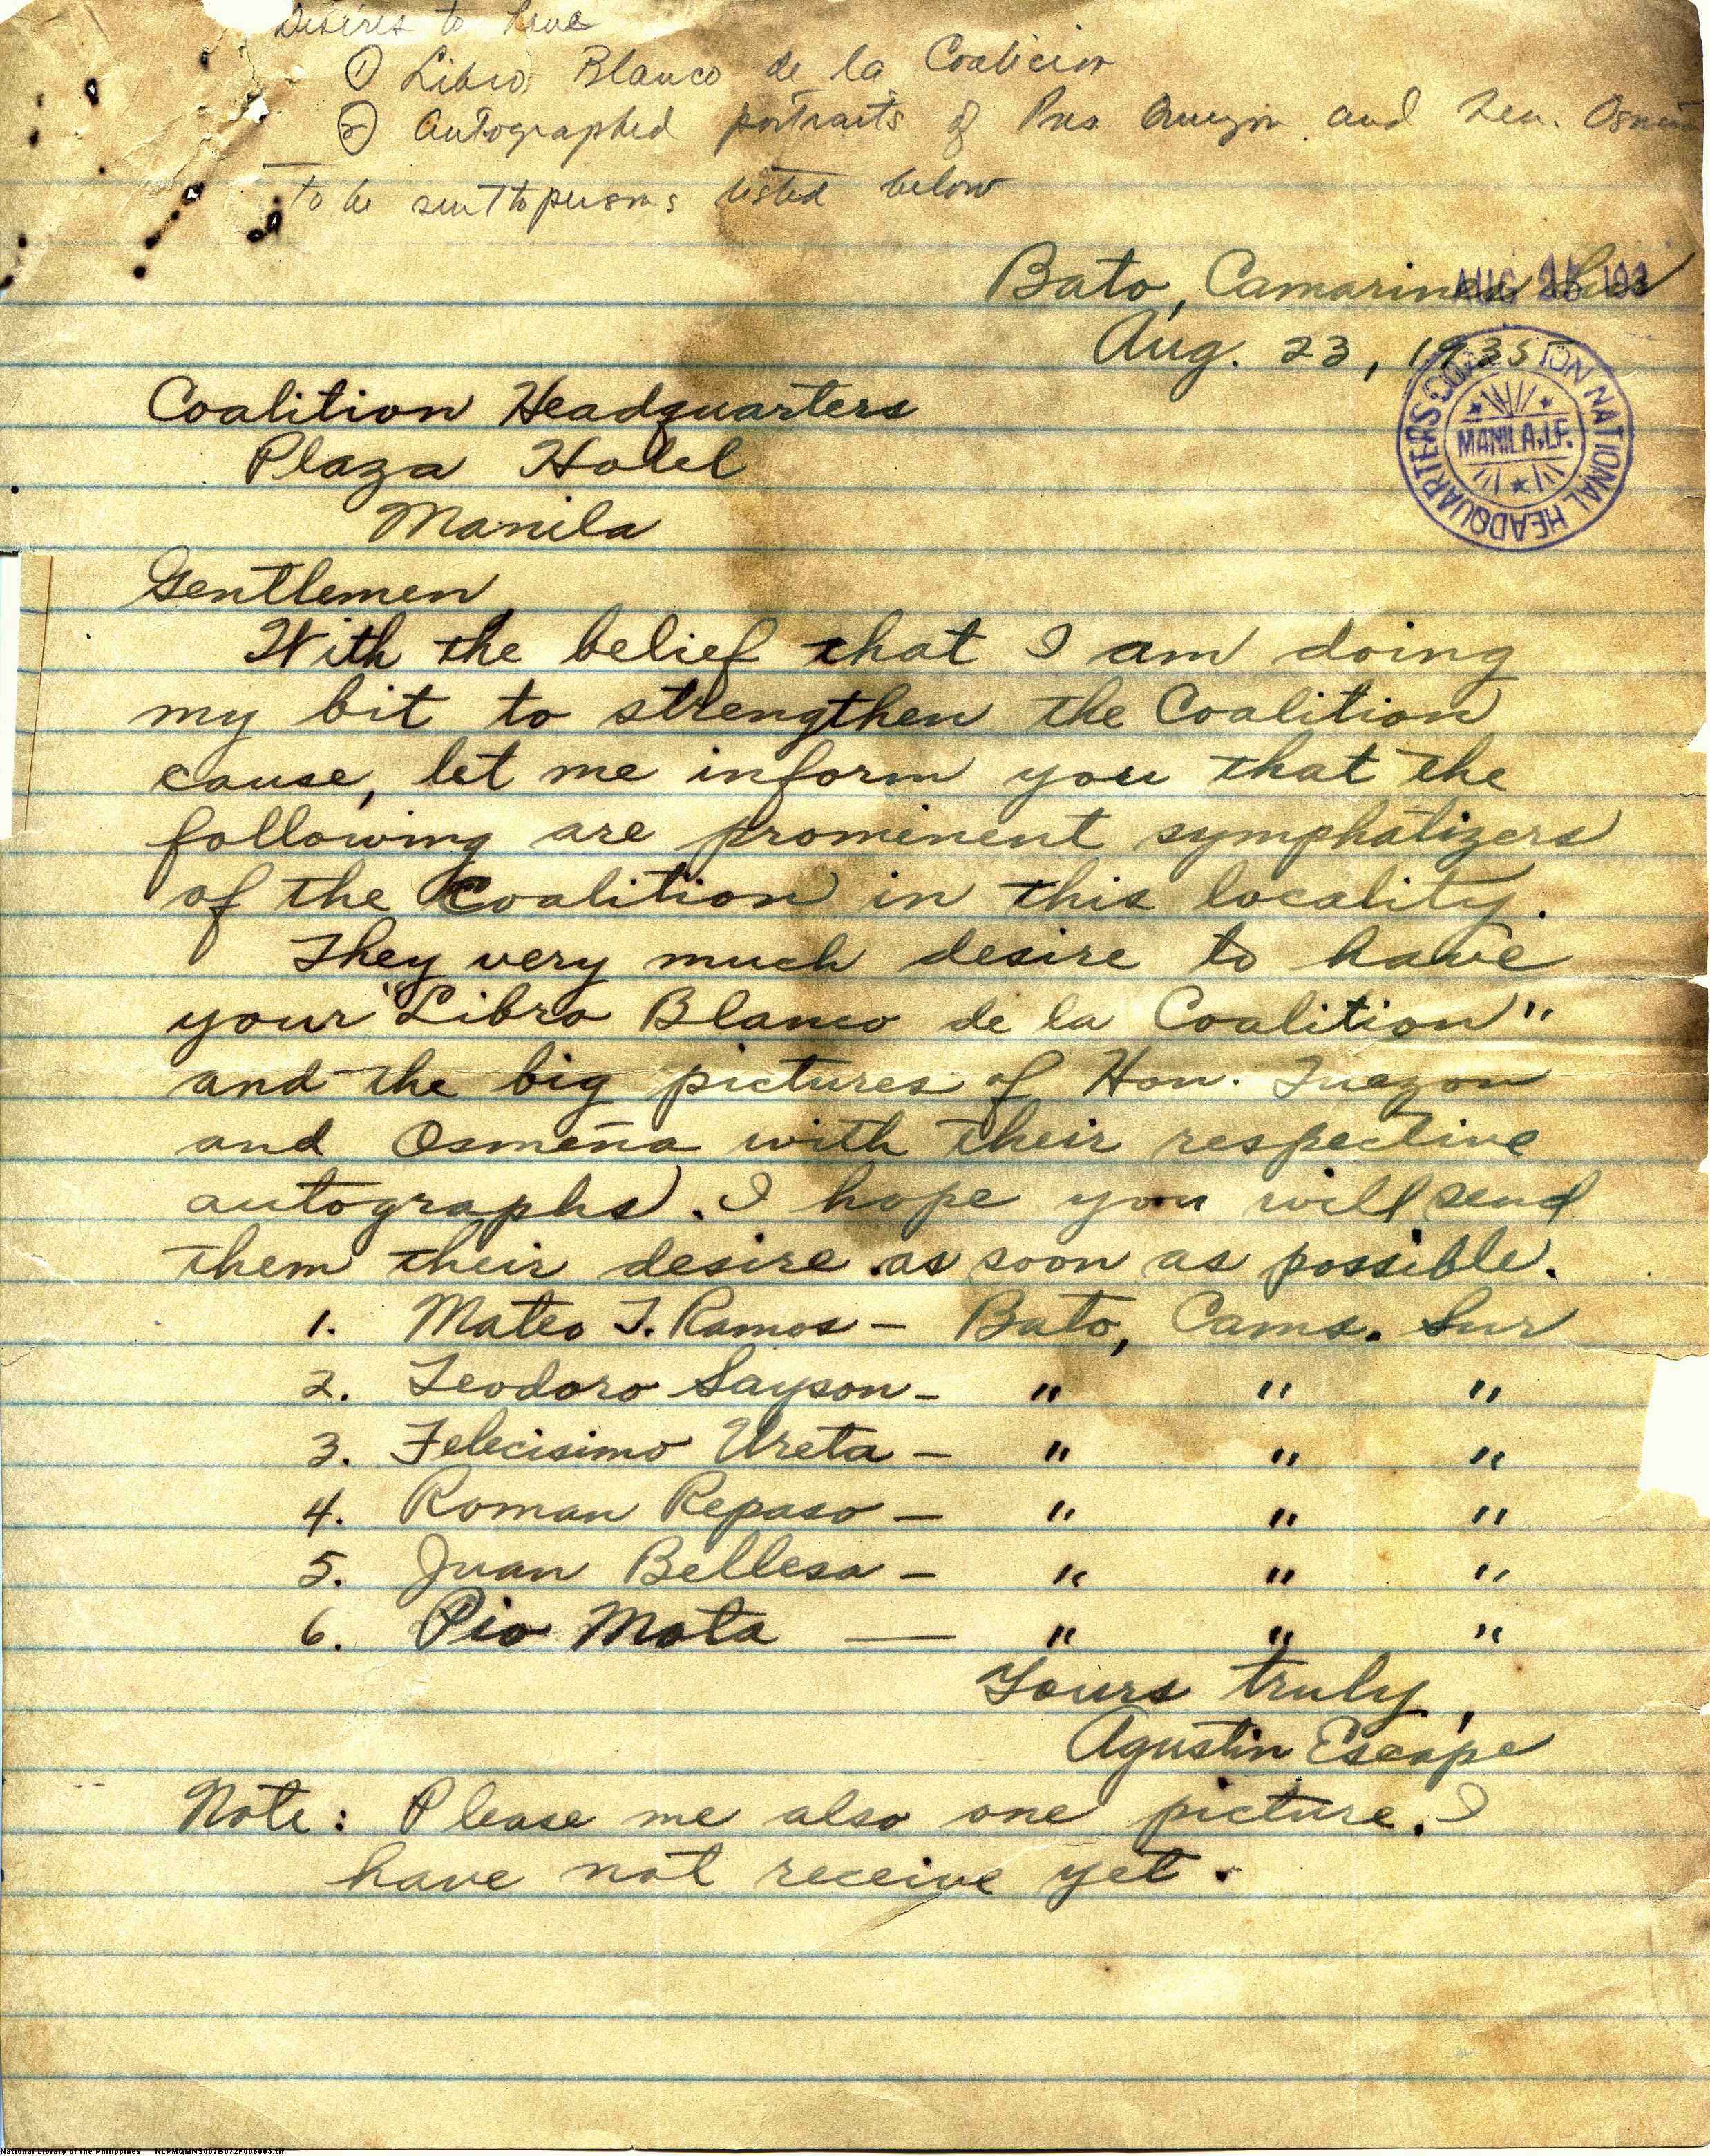 Desires to have
① Libro Blanco de la Coalicion
② Autographed portraits of Pres. Quezon and Sen. Osmeña
to be sent to persons listed below
Bato, Camarines Sur
AUG 25 193
Aug. 23, 1935
COALITION NATIONAL HEADQUARTERS
MANILA, I.F.
Coalition Headquarters
Plaza Hotel
Manila
Gentlemen
With the belief that I am doing
my bit to strengthen the Coalition
cause, let me inform you that the
following are prominent symphatizers
of the Coalition in this locality.
They very much desire to have
your "Libro Blanco de la Coalition"
and the big pictures of Hon. Quezon
and Osmeña with their respective
autographs. I hope you will send
them their desire as soon as possible.
1. Mateo T. Ramos - Bato, Cams. Sur
2. Teodoro Sayson - " " "
3. Felecisimo Ureta - " " "
4. Roman Repaso - " " "
5. Juan Bellesa - " " "
6. Pio Mota — " " "
Yours truly,
Agustin Escape
Note: Please me also one picture. I
have not receive yet.
National Library of the Philippines